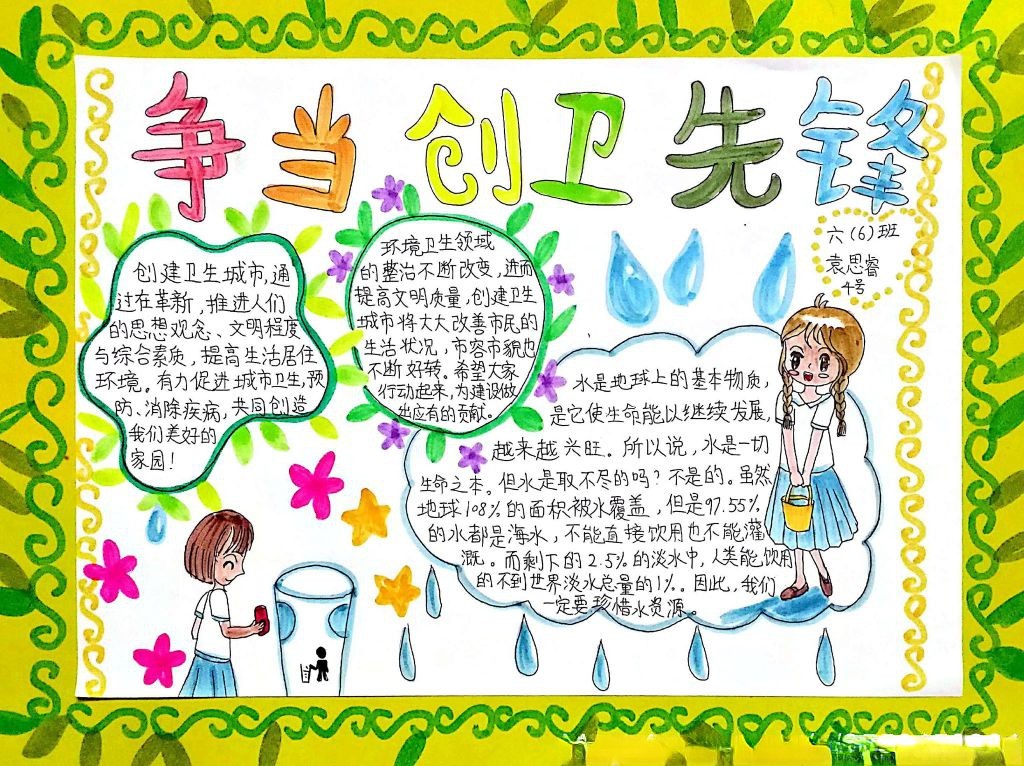 争当创卫先锋
六(6)班
袁思睿
4号
创建卫生城市,通
过在革新,推进人们
的思想观念、文明程度
与综合素质,提高生活居住
环境。有力促进城市卫生,预
防、消除疾病,共同创造
我们美好的
家园!
环境卫生领域
的整治不断改变,进而
提高文明质量,创建卫生
城市将大大改善市民的
生活状况,市容市貌也
不断好转。希望大家
行动起来,为建设做
出应有的贡献。
水是地球上的基本物质,
是它使生命能以继续发展,
越来越兴旺。所以说,水是一切
生命之本。但水是取不尽的吗?不是的。虽然
地球108%的面积被水覆盖,但是97.55%
的水都是海水,不能直接饮用也不能灌
溉。而剩下的2.5%的淡水中,人类能饮用
的不到世界淡水总量的1%。因此,我们
一定要珍惜水资源。